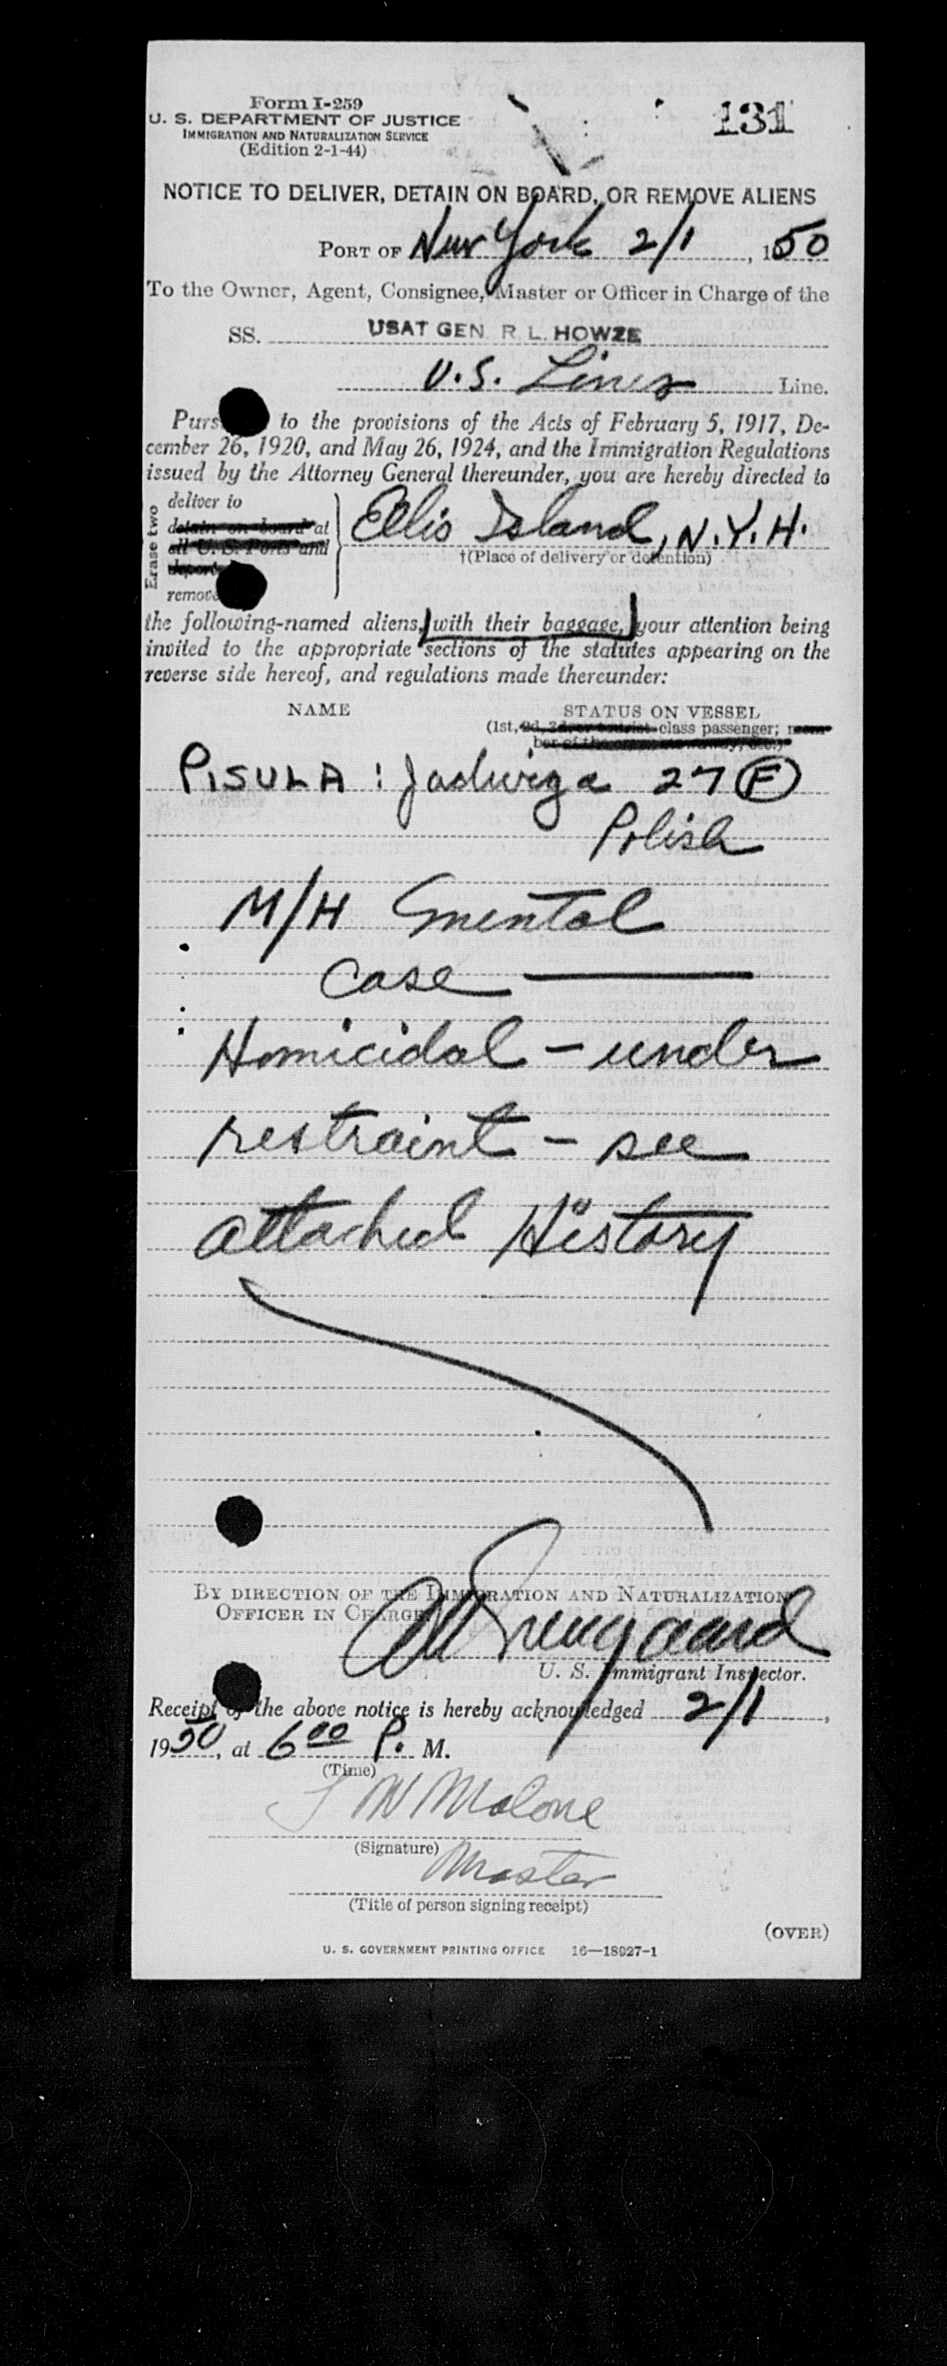 Form I-259
131
U. S. DEPARTMENT OF JUSTICE
IMMIGRATION AND NATURALIZATION SERVICE
(Edition 2-1-44)
NOTICE TO DELIVER, DETAIN ON BOARD, OR REMOVE ALIENS
PORT OF New York 2/1, 1950
To the Owner, Agent, Consignee, Master or Officer in Charge of the
SS. USAT GEN R. L. HOWZE
U.S. Lines Line.
Purs to the provisions of the Acts of February 5, 1917, De-
cember 26, 1920, and May 26, 1924, and the Immigration Regulations
issued by the Attorney General thereunder, you are hereby directed to
Erase two
deliver to
detain on board at
all U. S. Ports and
deport
remove
Ellis Island, N.Y.H.
†(Place of delivery or detention)
the following-named aliens, with their baggage, your attention being
invited to the appropriate sections of the statutes appearing on the
reverse side hereof, and regulations made thereunder:
NAME STATUS ON VESSEL
(1st, 2d, 3d, or tourist class passenger; mem-
ber of the crew, stowaway, etc.)
PISULA : Jadwiga 27 F
Polish
M/H mental
case
Homicidal - under
restraint - see
attached History
BY DIRECTION OF THE IMMIGRATION AND NATURALIZATION
OFFICER IN CHARGE:
U. S. Immigrant Inspector.
Receipt of the above notice is hereby acknowledged 2/1,
1950, at 6 00 P. M.
(Time)
W Malone
(Signature)
Master
(Title of person signing receipt)
(OVER)
U. S. GOVERNMENT PRINTING OFFICE 16—18927-1